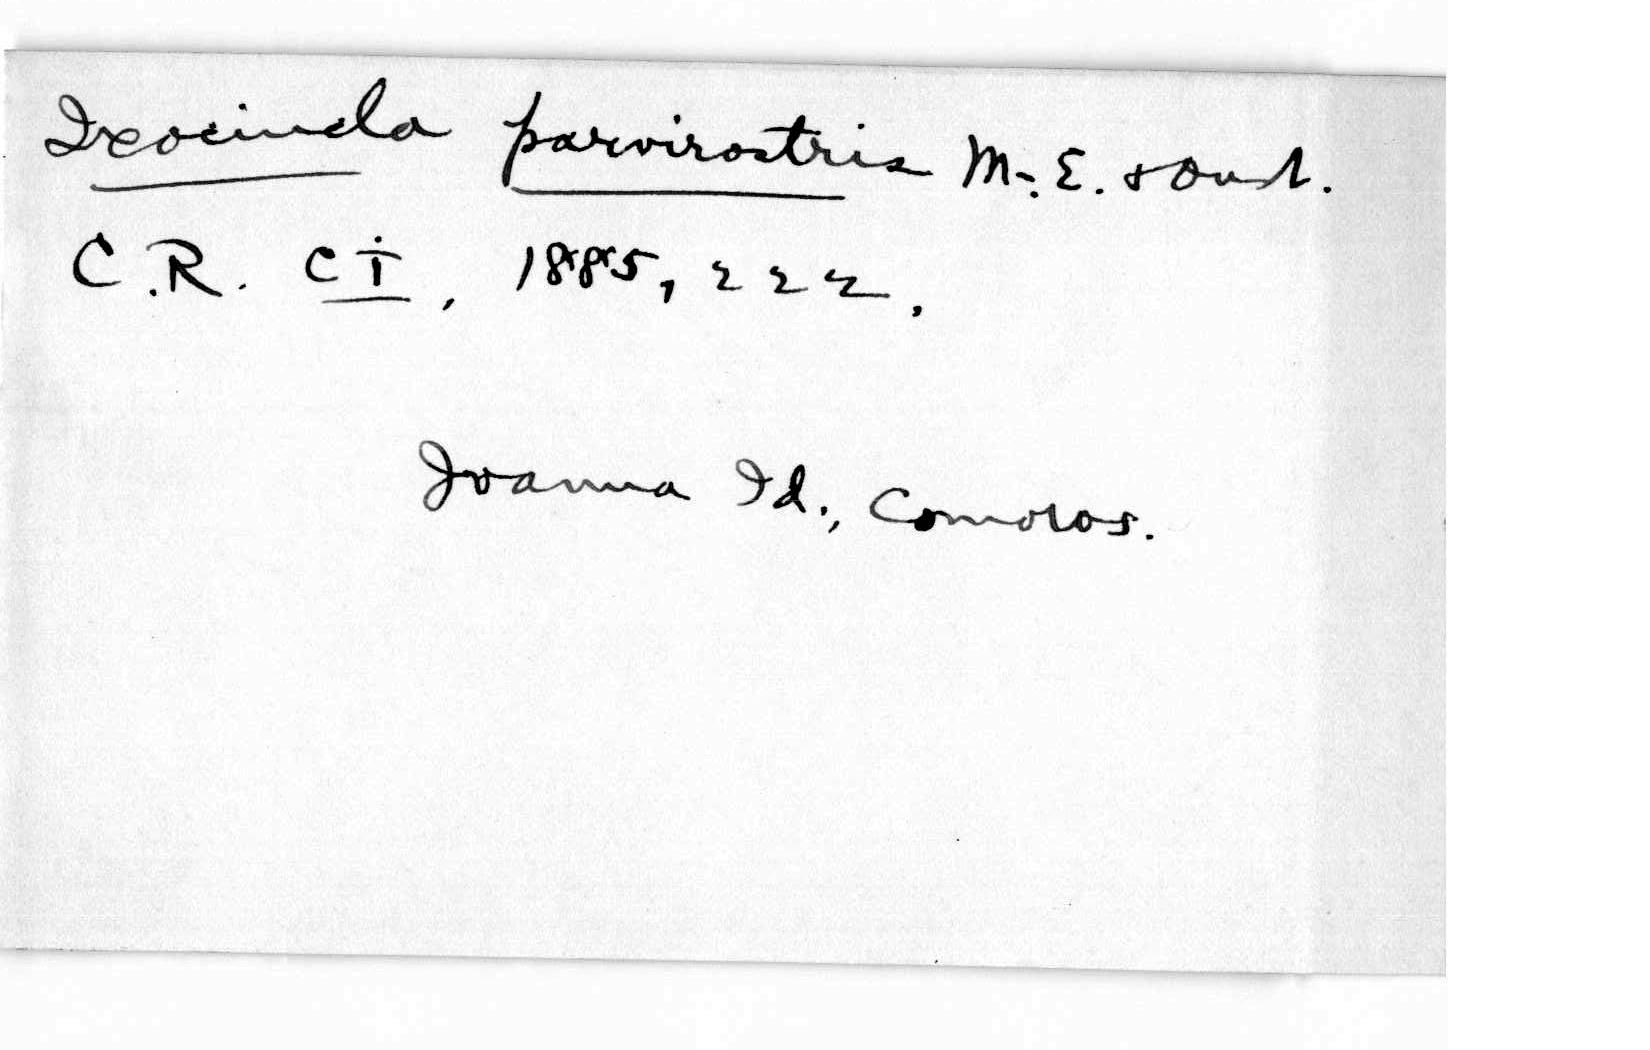 Ixocincla parvirostris M.-E. & Oust.
C.R. CI, 1885, 222.
Joanna Id., Comoros.